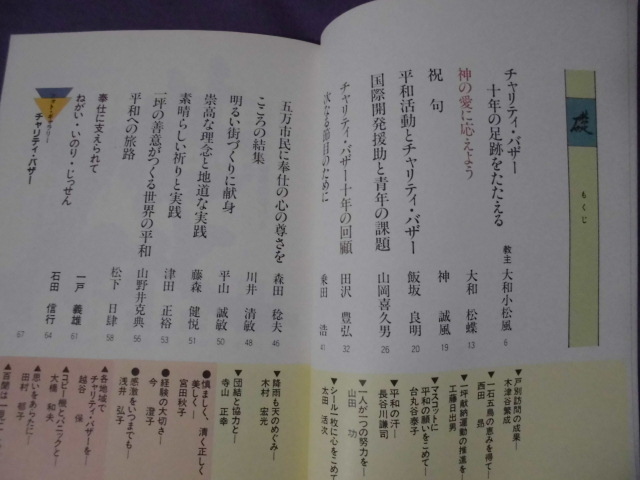 礎
もくじ
チャリティ・バザー
十年の足跡をたたえる
教主 大和小松風 6
神の愛に応えよう
大和 松蝶 13
祝句
神 誠風 19
平和活動とチャリティ・バザー
飯坂 良明 20
国際開発援助と青年の課題
山岡喜久男 26
チャリティ・バザー十年の回顧
田沢 豊弘 32
次なる節目のために
乗田 浩 41
五万市民に奉仕の心の尊さを
森田 稔夫 46
こころの結集
川井 清敏 48
明るい街づくりに献身
平山 誠敏 50
崇高な理念と地道な実践
藤森 健悦 51
素晴らしい祈りと実践
津田 正裕 53
一坪の善意がつくる世界の平和
山野井克典 56
平和への旅路
松下 日肆 58
奉仕に支えられて
一戸 義雄 61
ねがい・いのり・じっせん
石田 信行 64
チャリティ・バザー
67
▼戸別訪問の成果―
木津谷繁成
▼一石二鳥の恵みを得て―
西田 昂
▼一坪献納運動の推進を―
工藤日出男
▼マスコットに
平和の願いをこめて―
台丸谷泰子
▼平和の汗―
長谷川謙司
▼一人が二つの努力を―
山田 功
▼シール一枚に心をこめて―
太田 活次
▼降雨も天のめぐみ―
木村 宏光
▼団結と協力と―
寺山 正幸
●慎ましく、清く正しく
美しく―
宮田秋子
●経験の大切さ―
今 澄子
●感激をいつまでも―
浅井 弘子
▲各地域で
チャリティ・バザーを―
越谷 保
▲コピー機とパニックと―
大橋 和夫
▲思いをあらたに―
田村 郁子